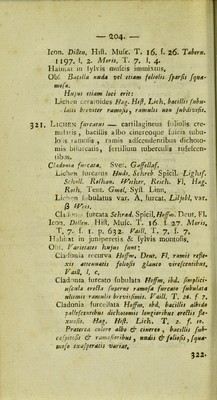 — 204. —
Icon. Dillen, Hist. Musc. T. 16. f. 26. Tabern.
1197. f. 2. Moris. T. 7. f. 4.
Habitat in sylvis muscis immixtus.
Obs. Bacilla nuda vel etiam foliolis sparsis squa-
mosa.
Hujus etiam loci erit:
Lichen ceranoides Hag. Hist. Lich. bacillis subu-
latis breviter ramosis, ramulis non subdivisis.
321. LICHEN furcatus — cartilagineus foliolis cre-
nulatis, bacillis albo cinereoque fuscis subu-
latis ramosis, ramis adscendentibus dichoto-
mis bifurcatis, fertilium tuberculis rufescen-
tibus.
Cladonia furcata. Svec. Gaffellaf.
Lichen furcatus Huds. Schreb. Spicil. Lightf.
Scholl. Relhan. Weber. Reich. Fl. Hag.
Roth. Tent. Gmel. Syst. Linn.
Lichen subulatus var. A, furcat. Liljebl. var.
β Weis.
Cladonia furcata Schrad. Spicil. Hoffm. Deut. Fl.
Icon. Dillen. Hist. Musc. T. 16. f. 27. Moris.
T. 7. f. 1. p. 632. Vaill. T. 7. f. 7.
Habitat in juniperetis & sylvis montosis.
Obs. Varietates hujus sunt:
Cladonia recurva Hoffm. Deut. Fl. ramis refle-
xis attenuatis foliosis glauco virescentibus.
Vaill. l. c.
Cladonia furcato subulata Hoffm. ibd. simplici-
uscula erecta superne ramosa furcato subulata
ultimis ramulis brevissimis. Vaill. T. 26. f. 7.
Cladonia furcellata Hoffm. ibd. bacillis albido
pallescentibus dichotomis longioribus erectis fle-
xuosis. Hag. Hist. Lich. T. 2. f. 10.
Praeterea colore albo & cinereo, bacillis sub-
cespitosis & ramosioribus, nudis & foliosis, squa-
moso exasperatis variat.
322.